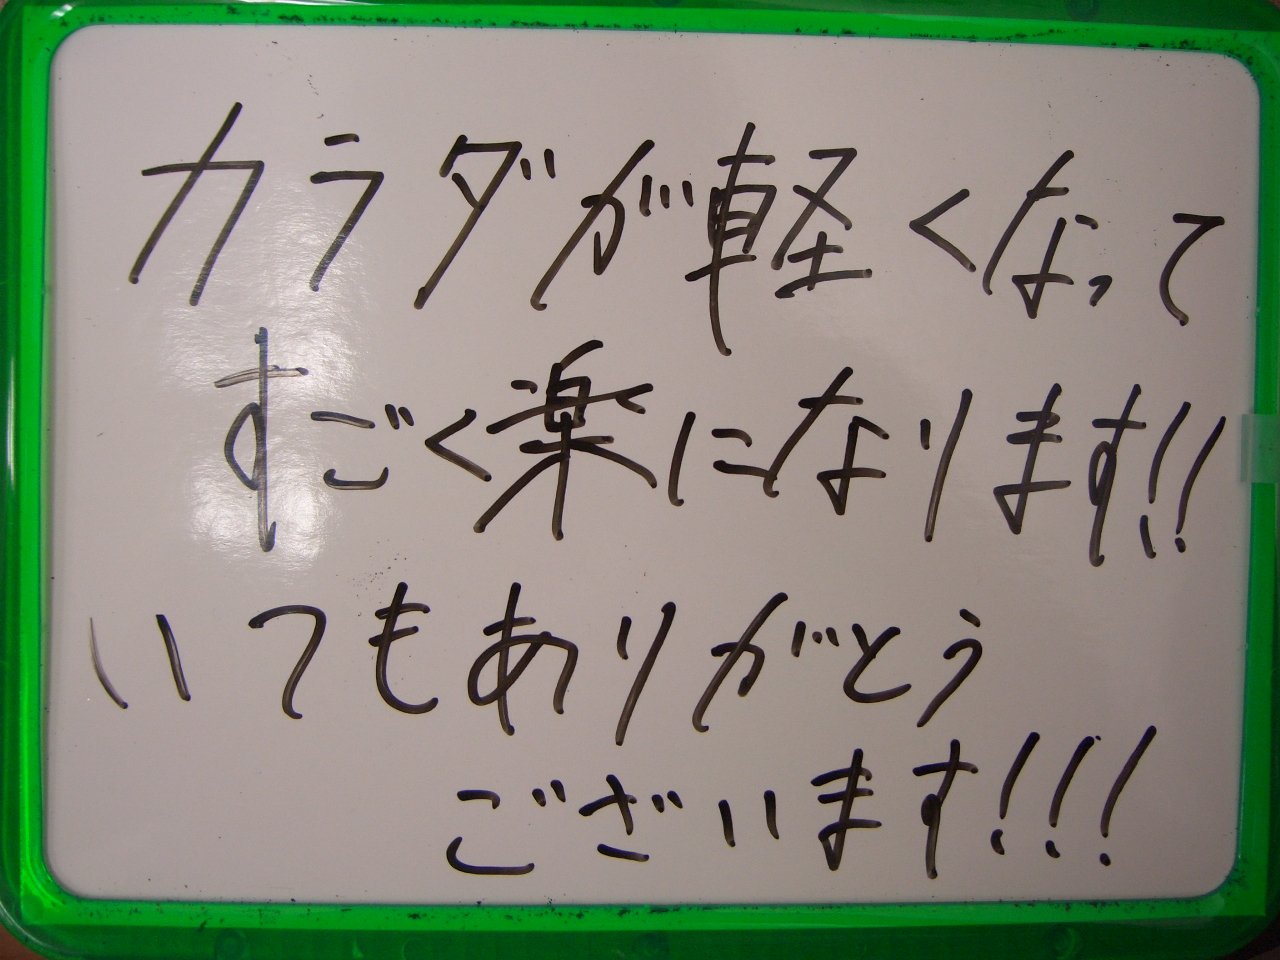 カラダが軽くなって
すごく楽になります!!
いてもありがとう
ございます!!!